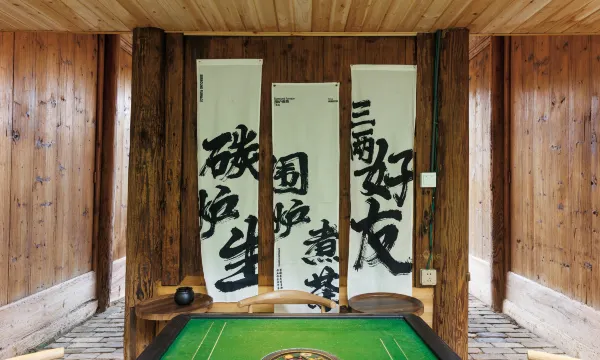 碳炉生
围炉煮茶
三两好友